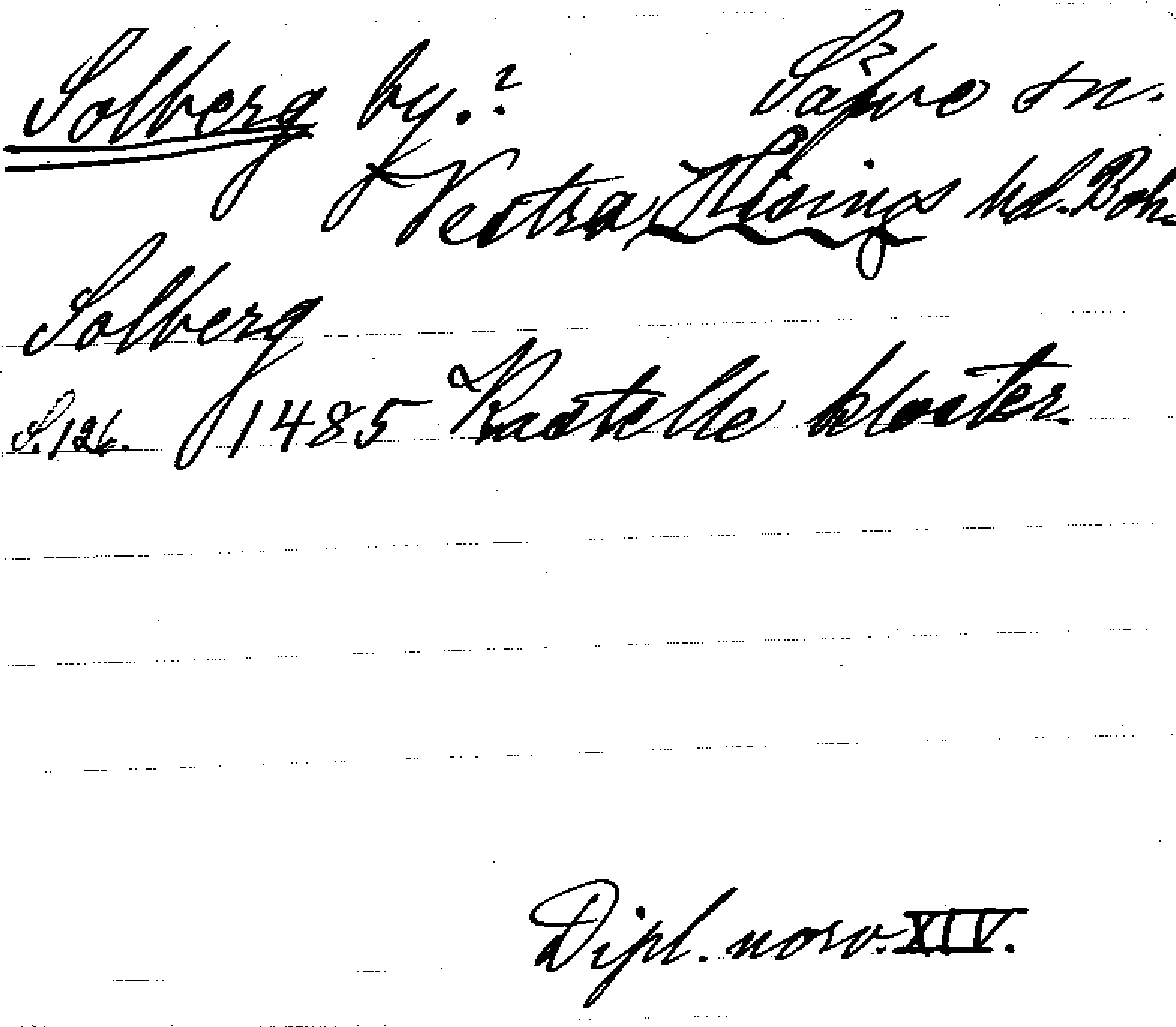 Solberg by.? Säfve sn.
Vestra Hisings hd. Boh.
Solberg
S. 126. 1485 Kastelle kloster.
Dipl. norv. XIV.